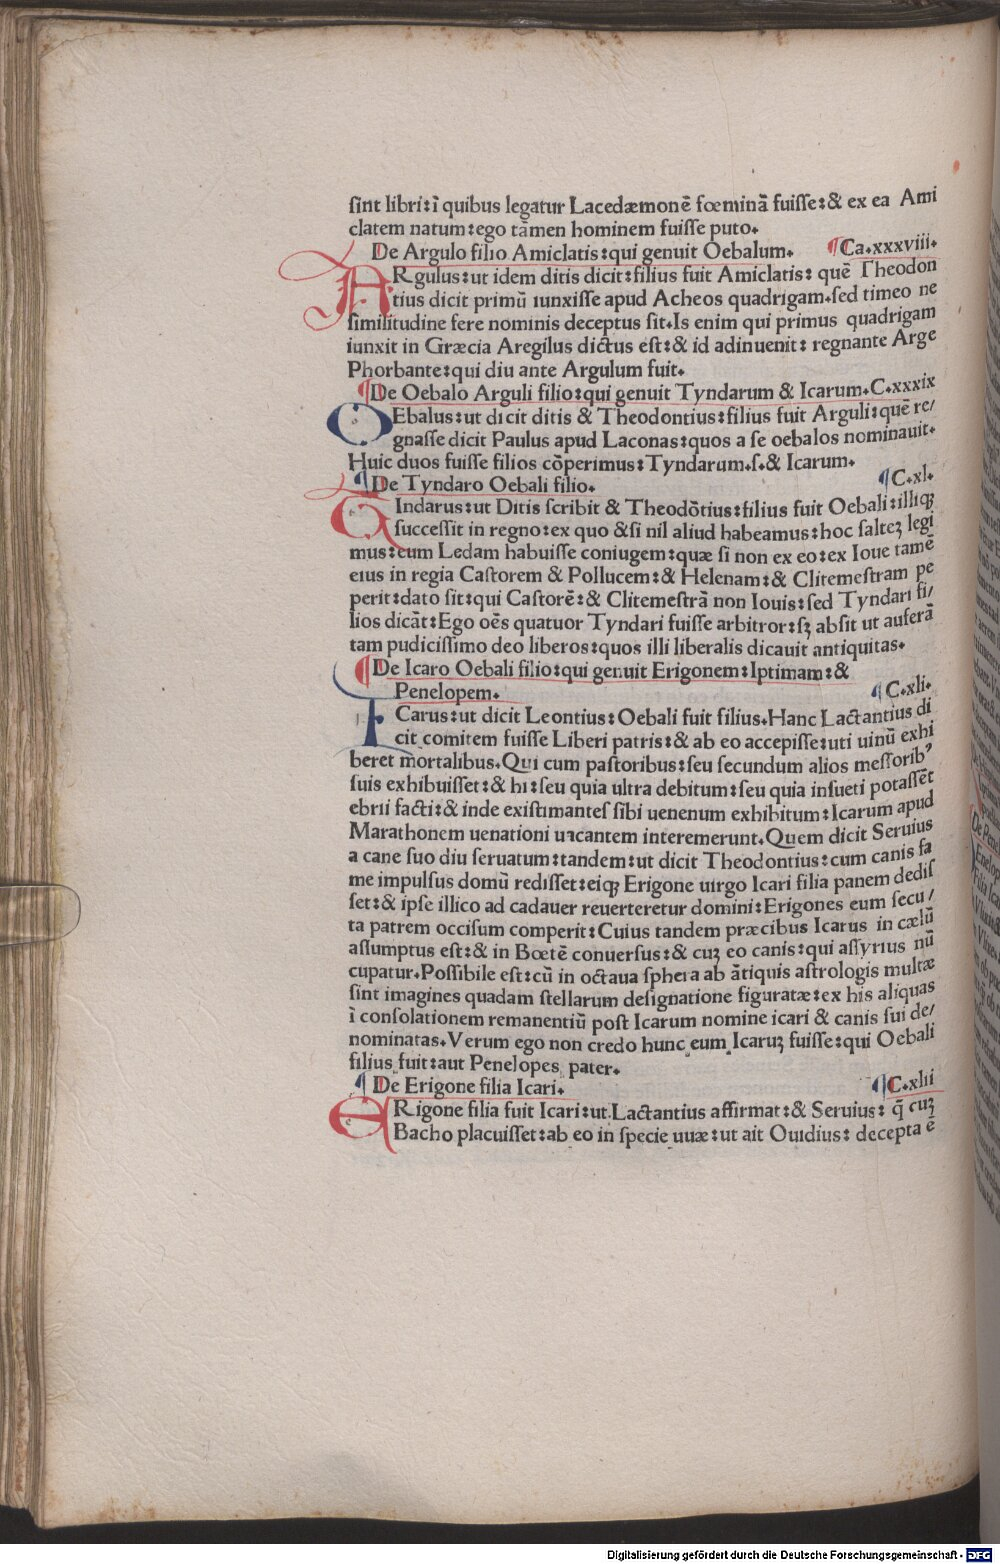 ſint libri:ī quibus legatur Lacedæmonē fœminā fuiſſe:& ex ea Ami
clatem natum:ego tamen hominem fuiſſe puto.
¶De Argulo filio Amiclatis:qui genuit Oebalum. ¶Ca.xxxviii.
ARgulus:ut idem ditis dicit:filius fuit Amiclatis: quē Theodon
tius dicit primū iunxiſſe apud Acheos quadrigam.ſed timeo ne
ſimilitudine fere nominis deceptus ſit.Is enim qui primus quadrigam
iunxit in Græcia Aregilus dictus eſt:& id adinuenit: regnante Arge
Phorbante:qui diu ante Argulum fuit.
¶De Oebalo Arguli filio:qui genuit Tyndarum & Icarum.C.xxxix
OEbalus:ut dicit ditis & Theodontius:filius fuit Arguli:quē re/
gnaſſe dicit Paulus apud Laconas:quos a ſe oebalos nominauit.
Huic duos fuiſſe filios cōperimus:Tyndarum.ſ.& Icarum.
¶De Tyndaro Oebali filio. ¶C.xl.
TIndarus:ut Ditis ſcribit & Theodōtius:filius fuit Oebali:illiqꝫ
ſucceſſit in regno:ex quo &ſi nil aliud habeamus:hoc ſalteꝫ legi
mus:eum Ledam habuiſſe coniugem:quæ ſi non ex eo:ex Ioue tamē
eius in regia Caſtorem & Pollucem:& Helenam:& Clitemeſtram pe
perit:dato ſit:qui Caſtorē:& Clitemeſtrā non Iouis:ſed Tyndari fi/
lios dicāt:Ego oēs quatuor Tyndari fuiſſe arbitror:ſꝫ abſit ut auferā
tam pudiciſſimo deo liberos:quos illi liberalis dicauit antiquitas.
¶De Icaro Oebali filio:qui genuit Erigonem:Iptimam:&
Penelopem. ¶C.xli.
ICarus:ut dicit Leontius:Oebali fuit filius.Hanc Lactantius di
cit comitem fuiſſe Liberi patris:& ab eo accepiſſe:uti uinū exhi
beret mortalibus.Qui cum paſtoribus:ſeu ſecundum alios meſſorib⁹
ſuis exhibuiſſet:& hi:ſeu quia ultra debitum:ſeu quia inſueti potaſſēt
ebrii facti:& inde exiſtimanteſ ſibi uenenum exhibitum:Icarum apud
Marathonem uenationi uacantem interemerunt.Quem dicit Seruius
a cane ſuo diu ſeruatum:tandem:ut dicit Theodontius:cum canis fa
me impulſus domū rediſſet:eiqꝫ Erigone uirgo Icari filia panem dediſ
ſet:& ipſe illico ad cadauer reuerteretur domini:Erigones eum ſecu/
ta patrem occiſum comperit:Cuius tandem præcibus Icarus in cælū
aſſumptus eſt:& in Bœtē conuerſus:& cuꝫ eo canis:qui aſſyrius nū
cupatur.Poſſibile eſt:cū in octaua ſphera ab ātiquis aſtrologis multæ
ſint imagines quadam ſtellarum deſignatione figuratæ:ex his aliquas
ī conſolationem remanentiū poſt Icarum nomine icari & canis ſui de/
nominatas.Verum ego non credo hunc eum Icaruꝫ fuiſſe:qui Oebali
filius fuit:aut Penelopes pater.
¶De Erigone filia Icari. ¶C.xlii
ERigone filia fuit Icari:ut Lactantius affirmat:& Seruius: q̄ cuꝫ
Bacho placuiſſet:ab eo in ſpecie uuæ:ut ait Ouidius: decepta ē
Digitalisierung gefördert durch die Deutsche Forschungsgemeinschaft - DFG